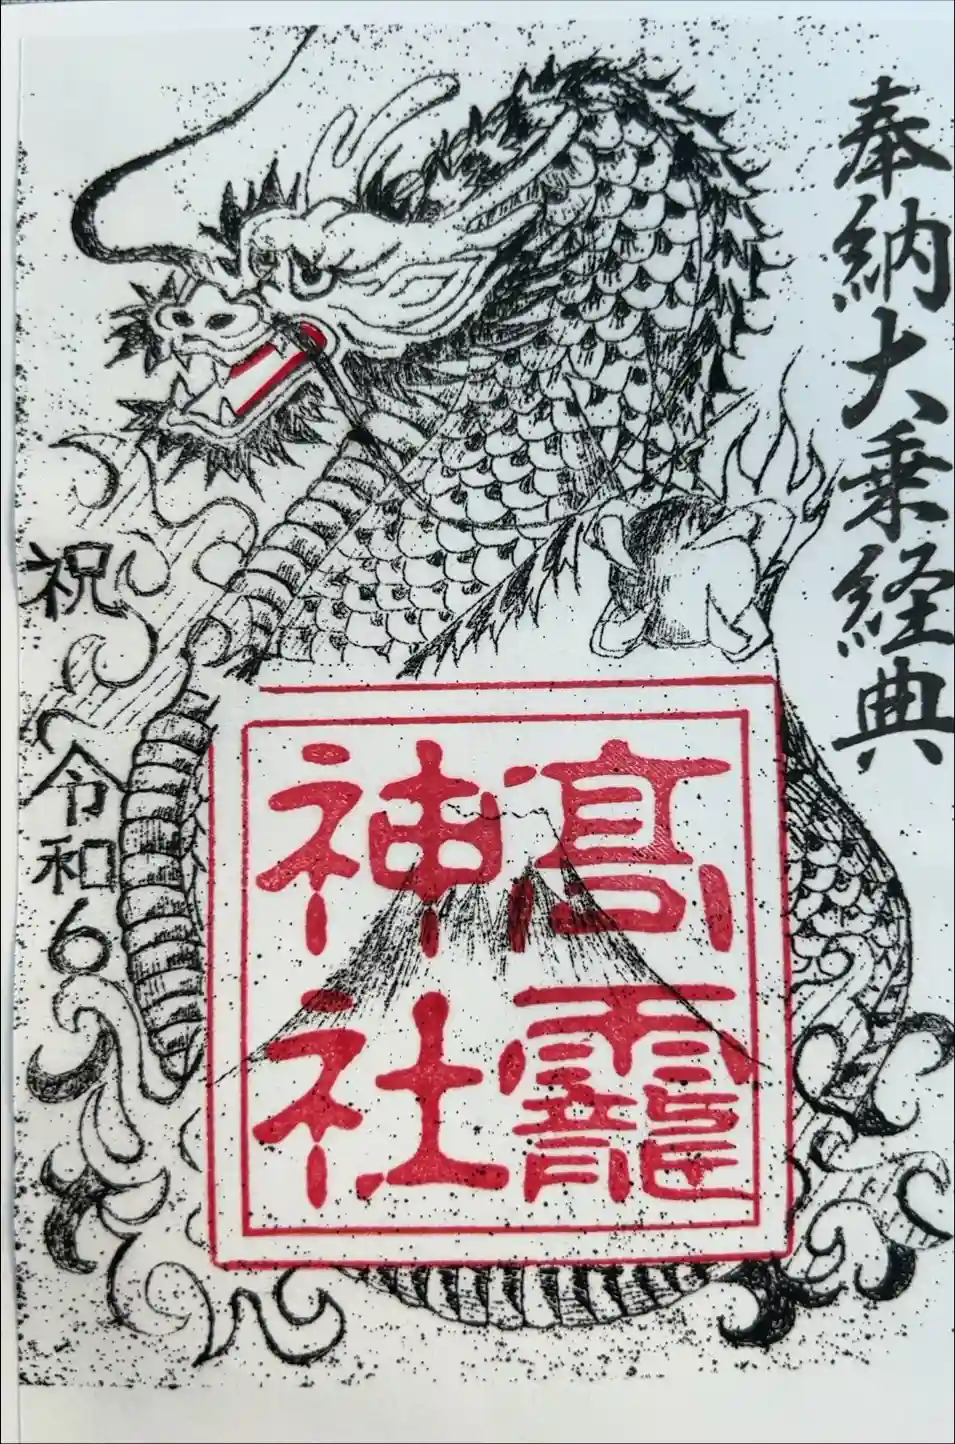 奉納大乗経典
髙龗
神社
祝 令和6